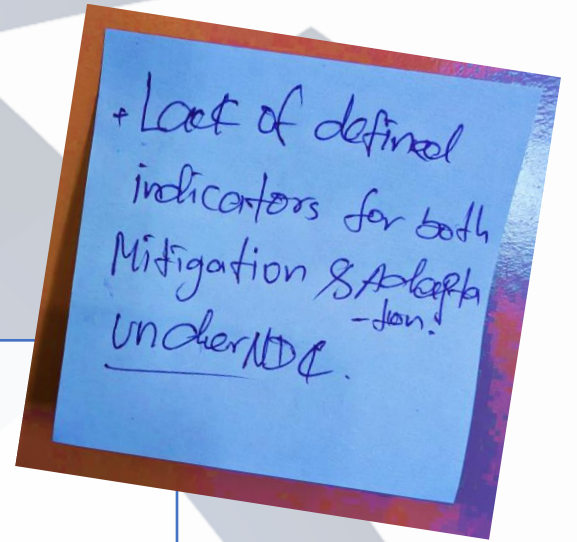 + Lack of defined
indicators for both
Mitigation & Adapta
-tion.
under NDC.